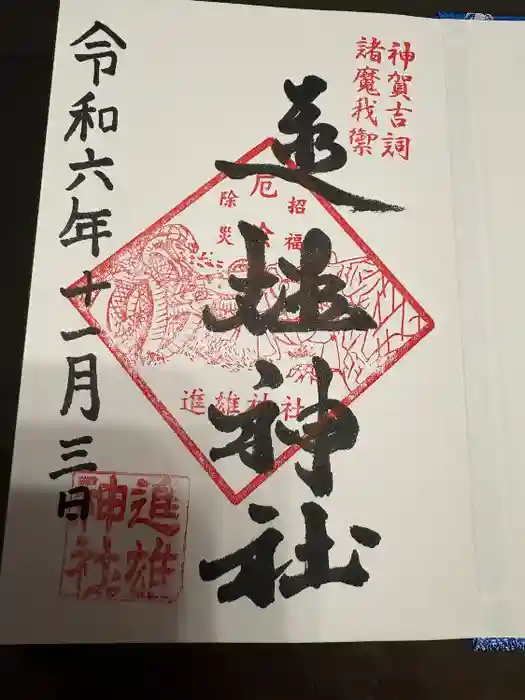 神賀吉詞
諸魔我禦
進雄神社
厄除
招福
除災
進雄神社
令和六年十一月三日
進雄
神社